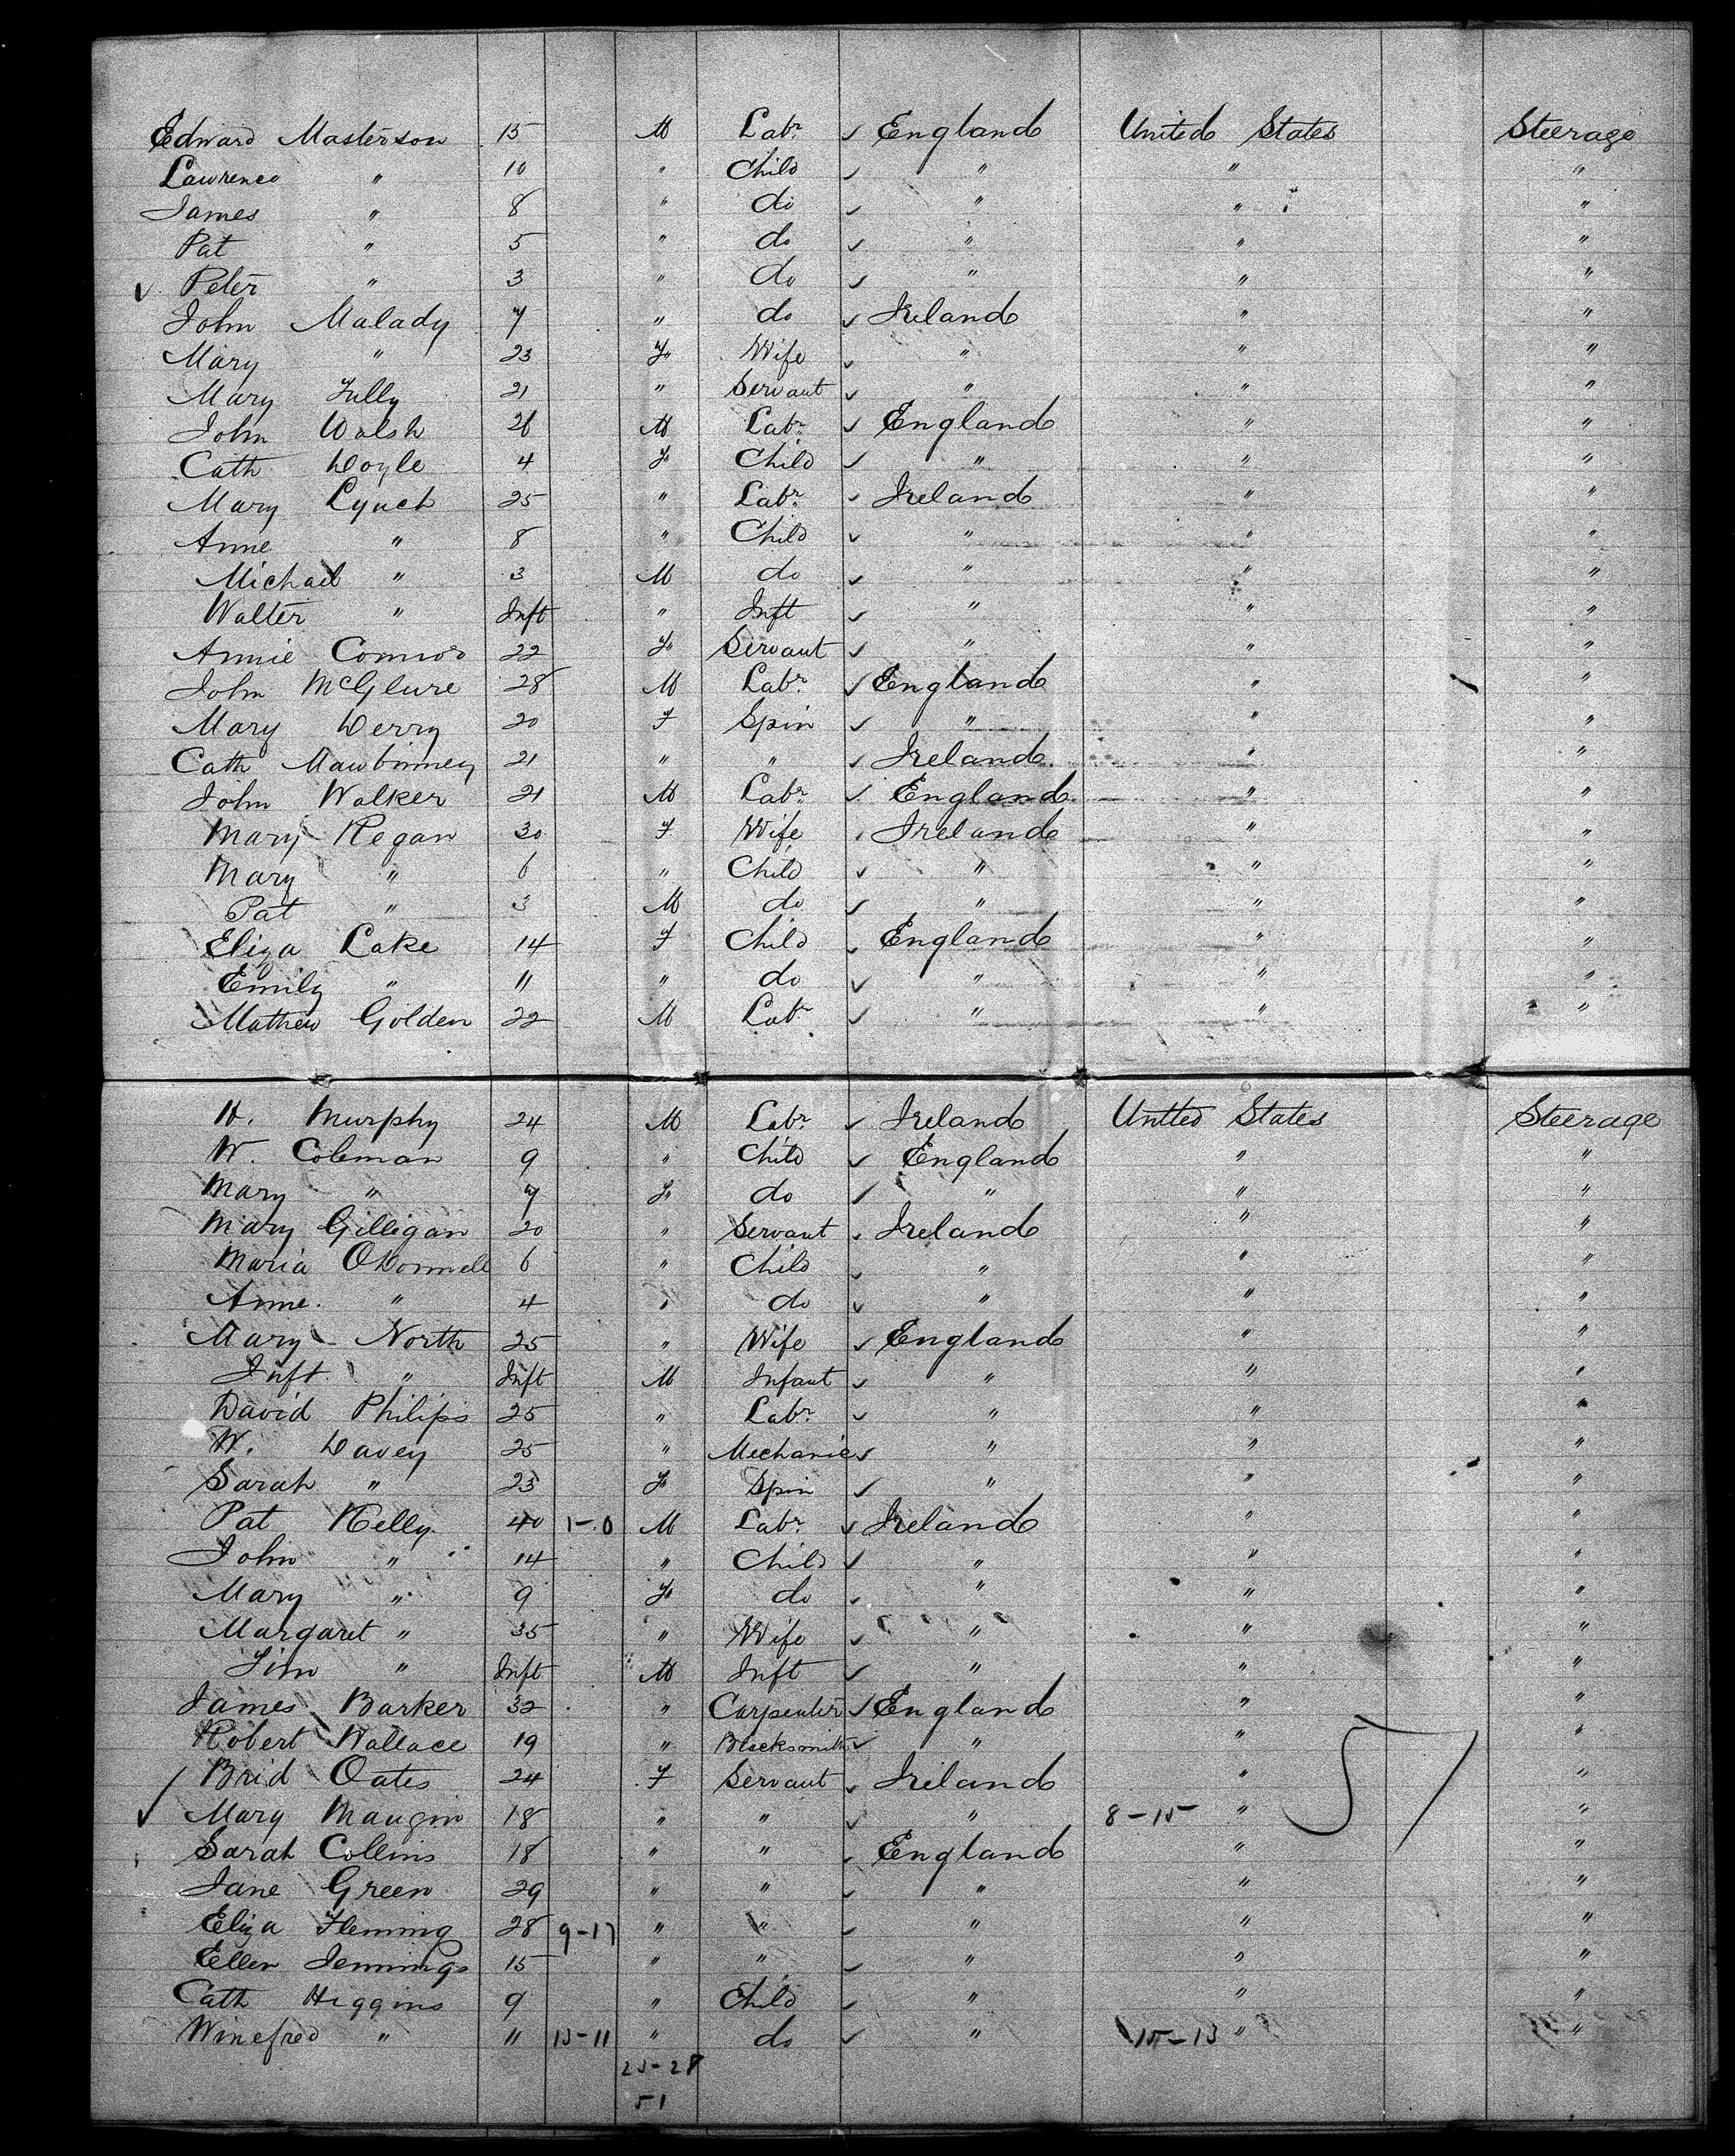 Edward Masterson 15 M Labr ✓ England United States Steerage
Lawrence " 10 " Child ✓ " " "
James " 8 " do ✓ " " "
Pat " 5 " do ✓ " " "
✓ Peter " 3 " do ✓ " " "
John Malady 7 " do ✓ Ireland " "
Mary " 23 F Wife ✓ " " "
Mary Tully 21 " Servant ✓ " " "
John Walsh 26 M Labr ✓ England " "
Cath Doyle 4 F Child ✓ " " "
Mary Lynch 25 " Labr ✓ Ireland " "
Anne " 8 " Child ✓ " " "
Michael " 3 M do ✓ " " "
Walter " Inft " Inft ✓ " " "
Annie Connor 22 F Servant ✓ " " "
John McGlure 28 M Labr ✓ England " "
Mary Derry 20 F Spin ✓ " " "
Cath Mawbinney 21 " " ✓ Ireland " "
John Walker 21 M Labr ✓ England " "
Mary Regan 30 F Wife Ireland " "
Mary " 6 " Child ✓ " " "
Pat " 3 M do ✓ " " "
Eliza Lake 14 F Child ✓ England " "
Emily " 11 " do ✓ " " "
Mathew Golden 22 M Labr ✓ " " "
Murphy 24 M Labr ✓ Ireland United States Steerage
W. Coleman 9 " Child ✓ England " "
Mary " 7 F do ✓ " " "
Mary Gilligan 20 " Servant ✓ Ireland " "
Maria ODonnell 6 " Child ✓ " " "
Anne " 4 " do ✓ " " "
Mary North 25 " Wife ✓ England " "
Inft " Inft M Infant ✓ " " "
David Philips 25 " Labr ✓ " " "
W. Davey 25 " Mechanic ✓ " " "
Sarah " 23 F Spin ✓ " " "
Pat Kelly 40 1-0 M Labr ✓ Ireland " "
John " 14 " Child ✓ " " "
Mary " 9 F do ✓ " " "
Margaret " 35 " Wife ✓ " " "
Tim " Inft M Inft ✓ " " "
James Barker 32 " Carpenter ✓ England " "
Robert Wallace 19 " Blacksmith ✓ " " "
Brid Oates 24 F Servant ✓ Ireland " "
✓ Mary Maugin 18 " " ✓ " 8-15 " 57 "
Sarah Collins 18 " " ✓ England " "
Jane Green 29 " " ✓ " " "
Eliza Fleming 28 9-17 " " ✓ " " "
Ellen Jennings 15 " " ✓ " " "
Cath Higgins 9 " Child ✓ " " "
Winefred " 11 13-11 " do ✓ " 15-13 " "
23-28
51